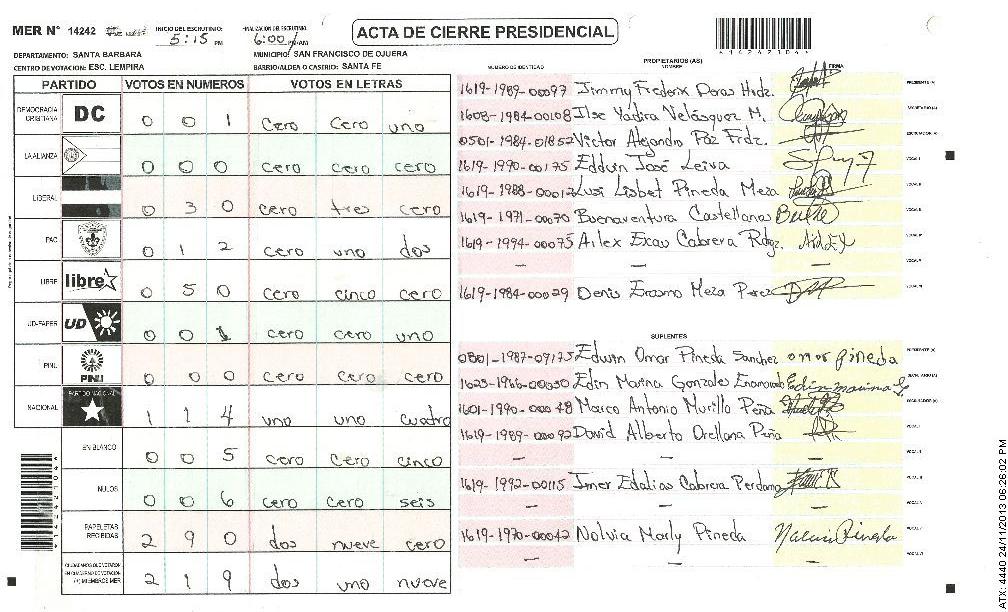 MER N° 14242 INICIO DEL ESCRUTINIO: 5:15 PM FINALIZACION DEL ESCRUTINIO: 6:00 PM/AM
ACTA DE CIERRE PRESIDENCIAL
DEPARTAMENTO: SANTA BARBARA MUNICIPIO: SAN FRANCISCO DE OJUERA
CENTRO DE VOTACION: ESC. LEMPIRA BARRIO/ALDEA O CASTRIO: SANTA FE
PARTIDO VOTOS EN NUMEROS VOTOS EN LETRAS
DEMOCRACIA CRISTIANA DC 0 0 1 cero cero uno
LA ALIANZA 0 0 0 cero cero cero
LIBERAL 0 3 0 cero tres cero
PAC 0 1 2 cero uno dos
LIBRE libre 0 5 0 cero cinco cero
UD-FAPER UD 0 0 1 cero cero uno
PINU PINU 0 0 0 cero cero cero
NACIONAL PARTIDO NACIONAL 1 1 4 uno uno cuatro
EN BLANCO 0 0 5 cero cero cinco
NULOS 0 0 6 cero cero seis
PAPELETAS RECIBIDAS 2 9 0 dos nueve cero
CIUDADANOS QUE VOTARON EN CUADERNO DE VOTACION (+) MIEMBROS MER 2 1 9 dos uno nueve
PROPIETARIOS (AS)
NUMERO DE IDENTIDAD NOMBRE FIRMA
1619-1989-00097 Jimmy Frederix Poras Hrdz. PRESIDENTE (A)
1608-1984-00108 Ilse Yadira Velásquez M. SECRETARIO (A)
0501-1984-01852 Victor Alejandro Paz Frdz. ESCRUTADOR (A)
1619-1990-00175 Edduin José Leiva VOCAL I
1619-1988-00012 Lusi Lisbet Pineda Meza VOCAL II
1619-1971-00070 Buenaventura Castellanos VOCAL III
1619-1994-00075 Arlex Ecas Cabrera Rdgz. VOCAL IV
— — — VOCAL V
1619-1984-00029 Denis Erasmo Meza Perez VOCAL VI
SUPLENTES
0801-1987-09175 Edwin Omar Pineda Sanchez omar pineda PRESIDENTE (A)
1623-1966-00030 Edin Marina Gonzales Enamorado SECRETARIO (A)
1601-1990-00048 Marco Antonio Murillo Peña ESCRUTADOR (A)
1619-1989-00092 David Alberto Orellana Peña VOCAL I
— — — VOCAL II
1619-1992-00115 Imer Edalias Cabrera Perdomo VOCAL III
— — — VOCAL IV
1619-1970-00042 Nolvia Marly Pineda VOCAL V
— — — VOCAL VI
ATX: 4440 24/11/2013 06:26:02 PM